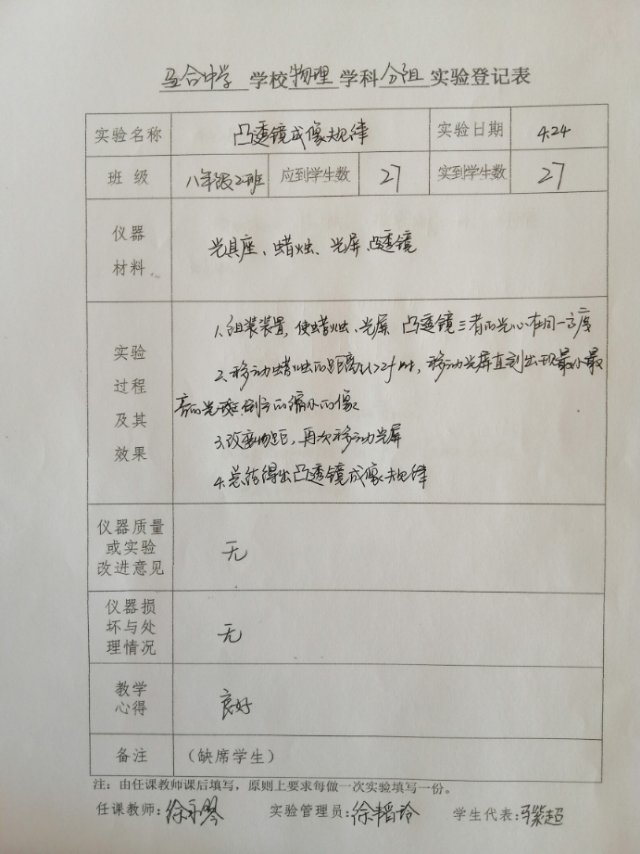 马合中学 学校 物理 学科 分组 实验登记表
实验名称 凸透镜成像规律 实验日期 4.24
班级 八年级2班 应到学生数 27 实到学生数 27
仪器
材料
光具座、蜡烛、光屏、凸透镜
实验
过程
及其
效果
1.组装装置,使蜡烛、光屏、凸透镜三者的光心在同一高度
2.移动蜡烛的距离u>2f时,移动光屏直到出现最小最
亮的光斑倒立的缩小的像
3.改变物距,再次移动光屏
4.总结得出凸透镜成像规律
仪器质量
或实验
改进意见
无
仪器损
坏与处
理情况
无
教学
心得
良好
备注 (缺席学生)
注:由任课教师课后填写,原则上要求每做一次实验填写一份。
任课教师:徐永琴 实验管理员:徐韬玲 学生代表: